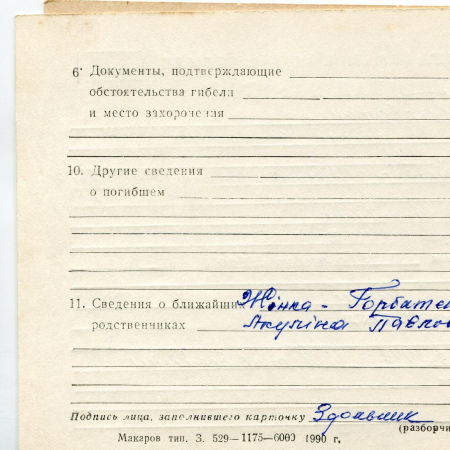 6· Документы, подтверждающие
обстоятельства гибели
и место захоронения
10. Другие сведения
о погибшем
11. Сведения о ближайших Жінка - Горбатен
родственниках Акуліна Павлов
Подпись лица, заполнившего карточку
(разборчи
Макаров тип. З. 529—1175—6000 1990 г.